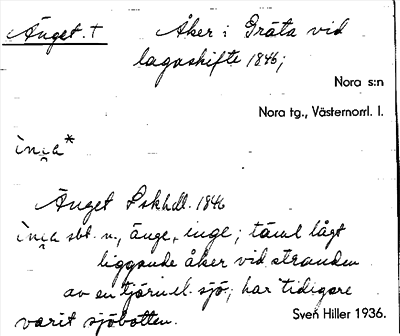 Änget. † Åker i Gräta vid
lagaskifte 1846;
Nora s:n
Nora tg., Västernorrl. l.
Änget Lskhdl. 1846
sbt. n., änge, inge; täml. lågt
liggande åker vid stranden
av en tjärn el. sjö; har tidigare
varit sjöbotten.
Sven Hiller 1936.